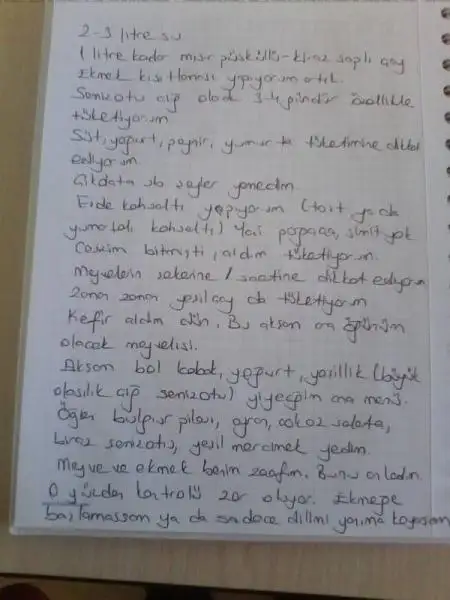 2-3 litre su
1 litre kadar mısır püsküllü-kiraz saplı çay
Ekmek kısıtlaması yapıyorum artık.
Semizotu çiğ olarak 3-4 gündür özellikle
tüketiyorum
Süt, yoğurt, peynir, yumurta tüketimine dikkat
ediyorum.
Çikolata vb şeyler yemedim.
Evde kahvaltı yapıyorum (tost ya da
yumurtalı kahvaltı) Yani poğaça, simit yok
Cevizim bitmişti, aldım tüketiyorum.
Meyvelerin şekerine / saatine dikkat ediyorum
Zaman zaman yeşil çay da tüketiyorum
Kefir aldım dün. Bu akşam ara öğünüm
olacak meyvelisi.
Akşam bol kabak, yoğurt, yeşillik (büyük
olasılık çiğ semizotu) yiyeceğim ana menü.
Öğlen bulgur pilavı, ayran, salata,
biraz semizotu, yeşil mercimek yedim.
Meyve ve ekmek benim zaafım. Bunu anladım.
O yüzden kontrolü zor oluyor. Ekmeğe
başlamassam ya da sadece dilimi yanıma koyarsam